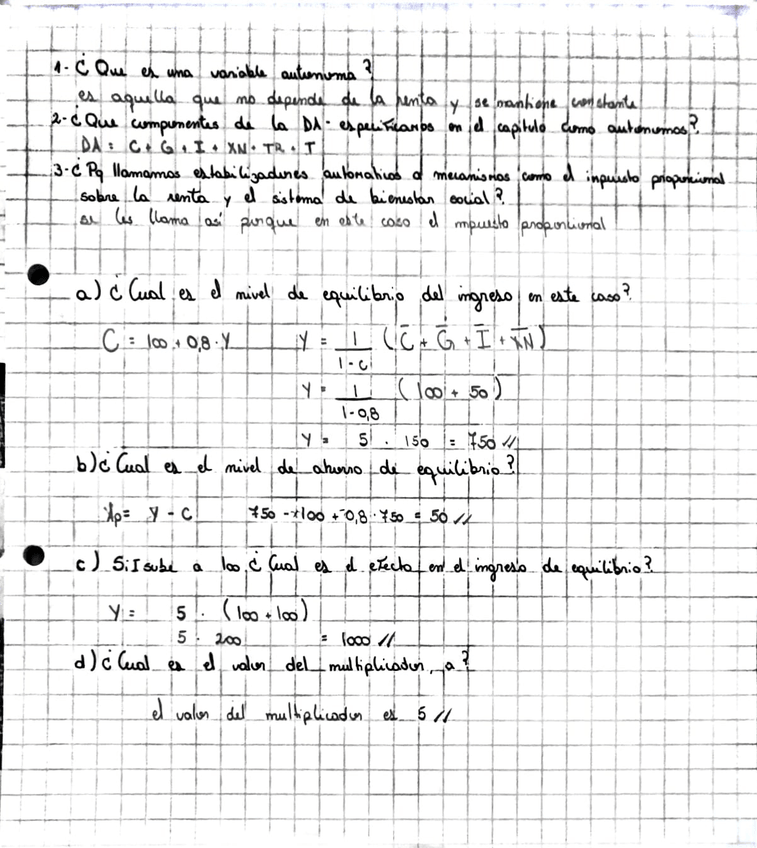 1- ¿ Que es una variable autonoma ?
es aquella que no depende de la renta y se mantiene constante
2- ¿ Que componentes de la DA · especificamos en el capitulo como autonomos?
DA = C + G + I + XN + TR + T
3- ¿ Pq llamamos estabilizadores automaticos a mecanismos como el inpuesto proporcional
sobre la renta y el sistema de bienestar social ?
se les llama así porque en este caso el impuesto proporcional
a) ¿ Cual es el nivel de equilibrio del ingreso en este caso?
C = 100 + 0,8 · Y Y = 1/(1-c) (C̄ + Ḡ + Ī + X̄N̄)
Y = 1/(1-0,8) (100 + 50)
Y = 5 · 150 = 750 //
b) ¿ Cual es el nivel de ahorro de equilibrio ?
Y - C 750 - 100 + -0,8 · 750 = 50 //
c) Si I sube a 100 ¿ Cual es el efecto en el ingreso de equilibrio?
Y = 5 · (100 + 100)
5 · 200 = 1000 //
d) ¿ Cual es el valor del multiplicador, a ?
el valor del multiplicador es 5 //